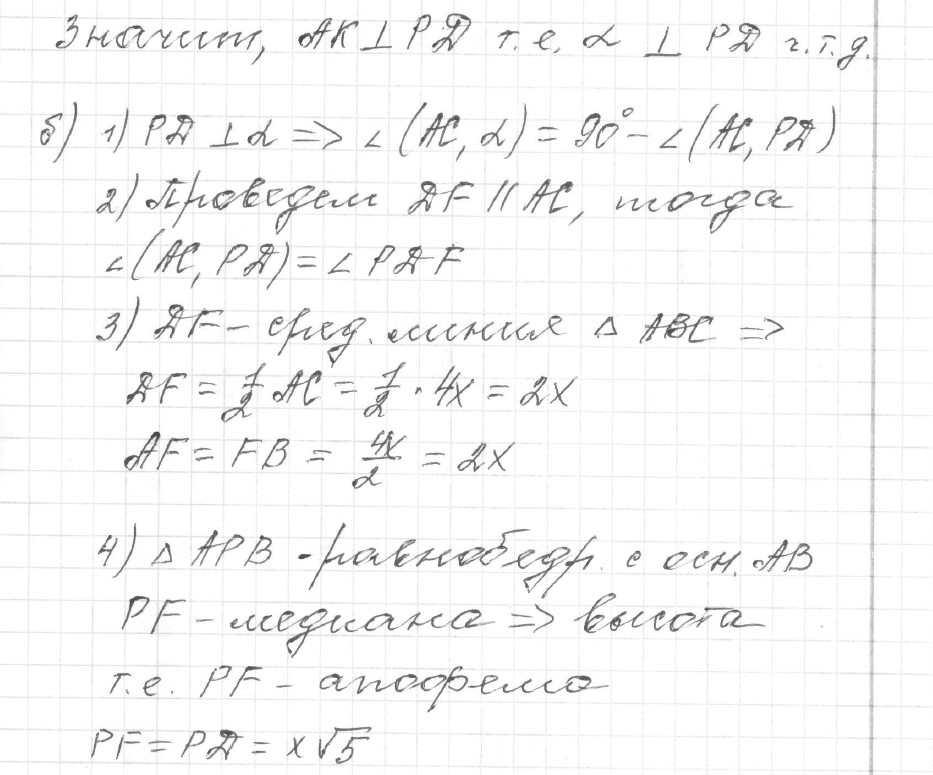 Значит, AK ⊥ PD т.е. α ⊥ PD ч.т.д.
б) 1) PD ⊥ α => ∠(AC, α) = 90° - ∠(AC, PD)
2) Проведем DF || AC, тогда
∠(AC, PD) = ∠ PDF
3) DF - сред. линия △ ABC =>
DF = 1/2 AC = 1/2 · 4x = 2x
AF = FB = 4x/2 = 2x
4) △ APB - равнобедр. с осн. AB
PF - медиана => высота
т.е. PF - апофема
PF = PD = x√5